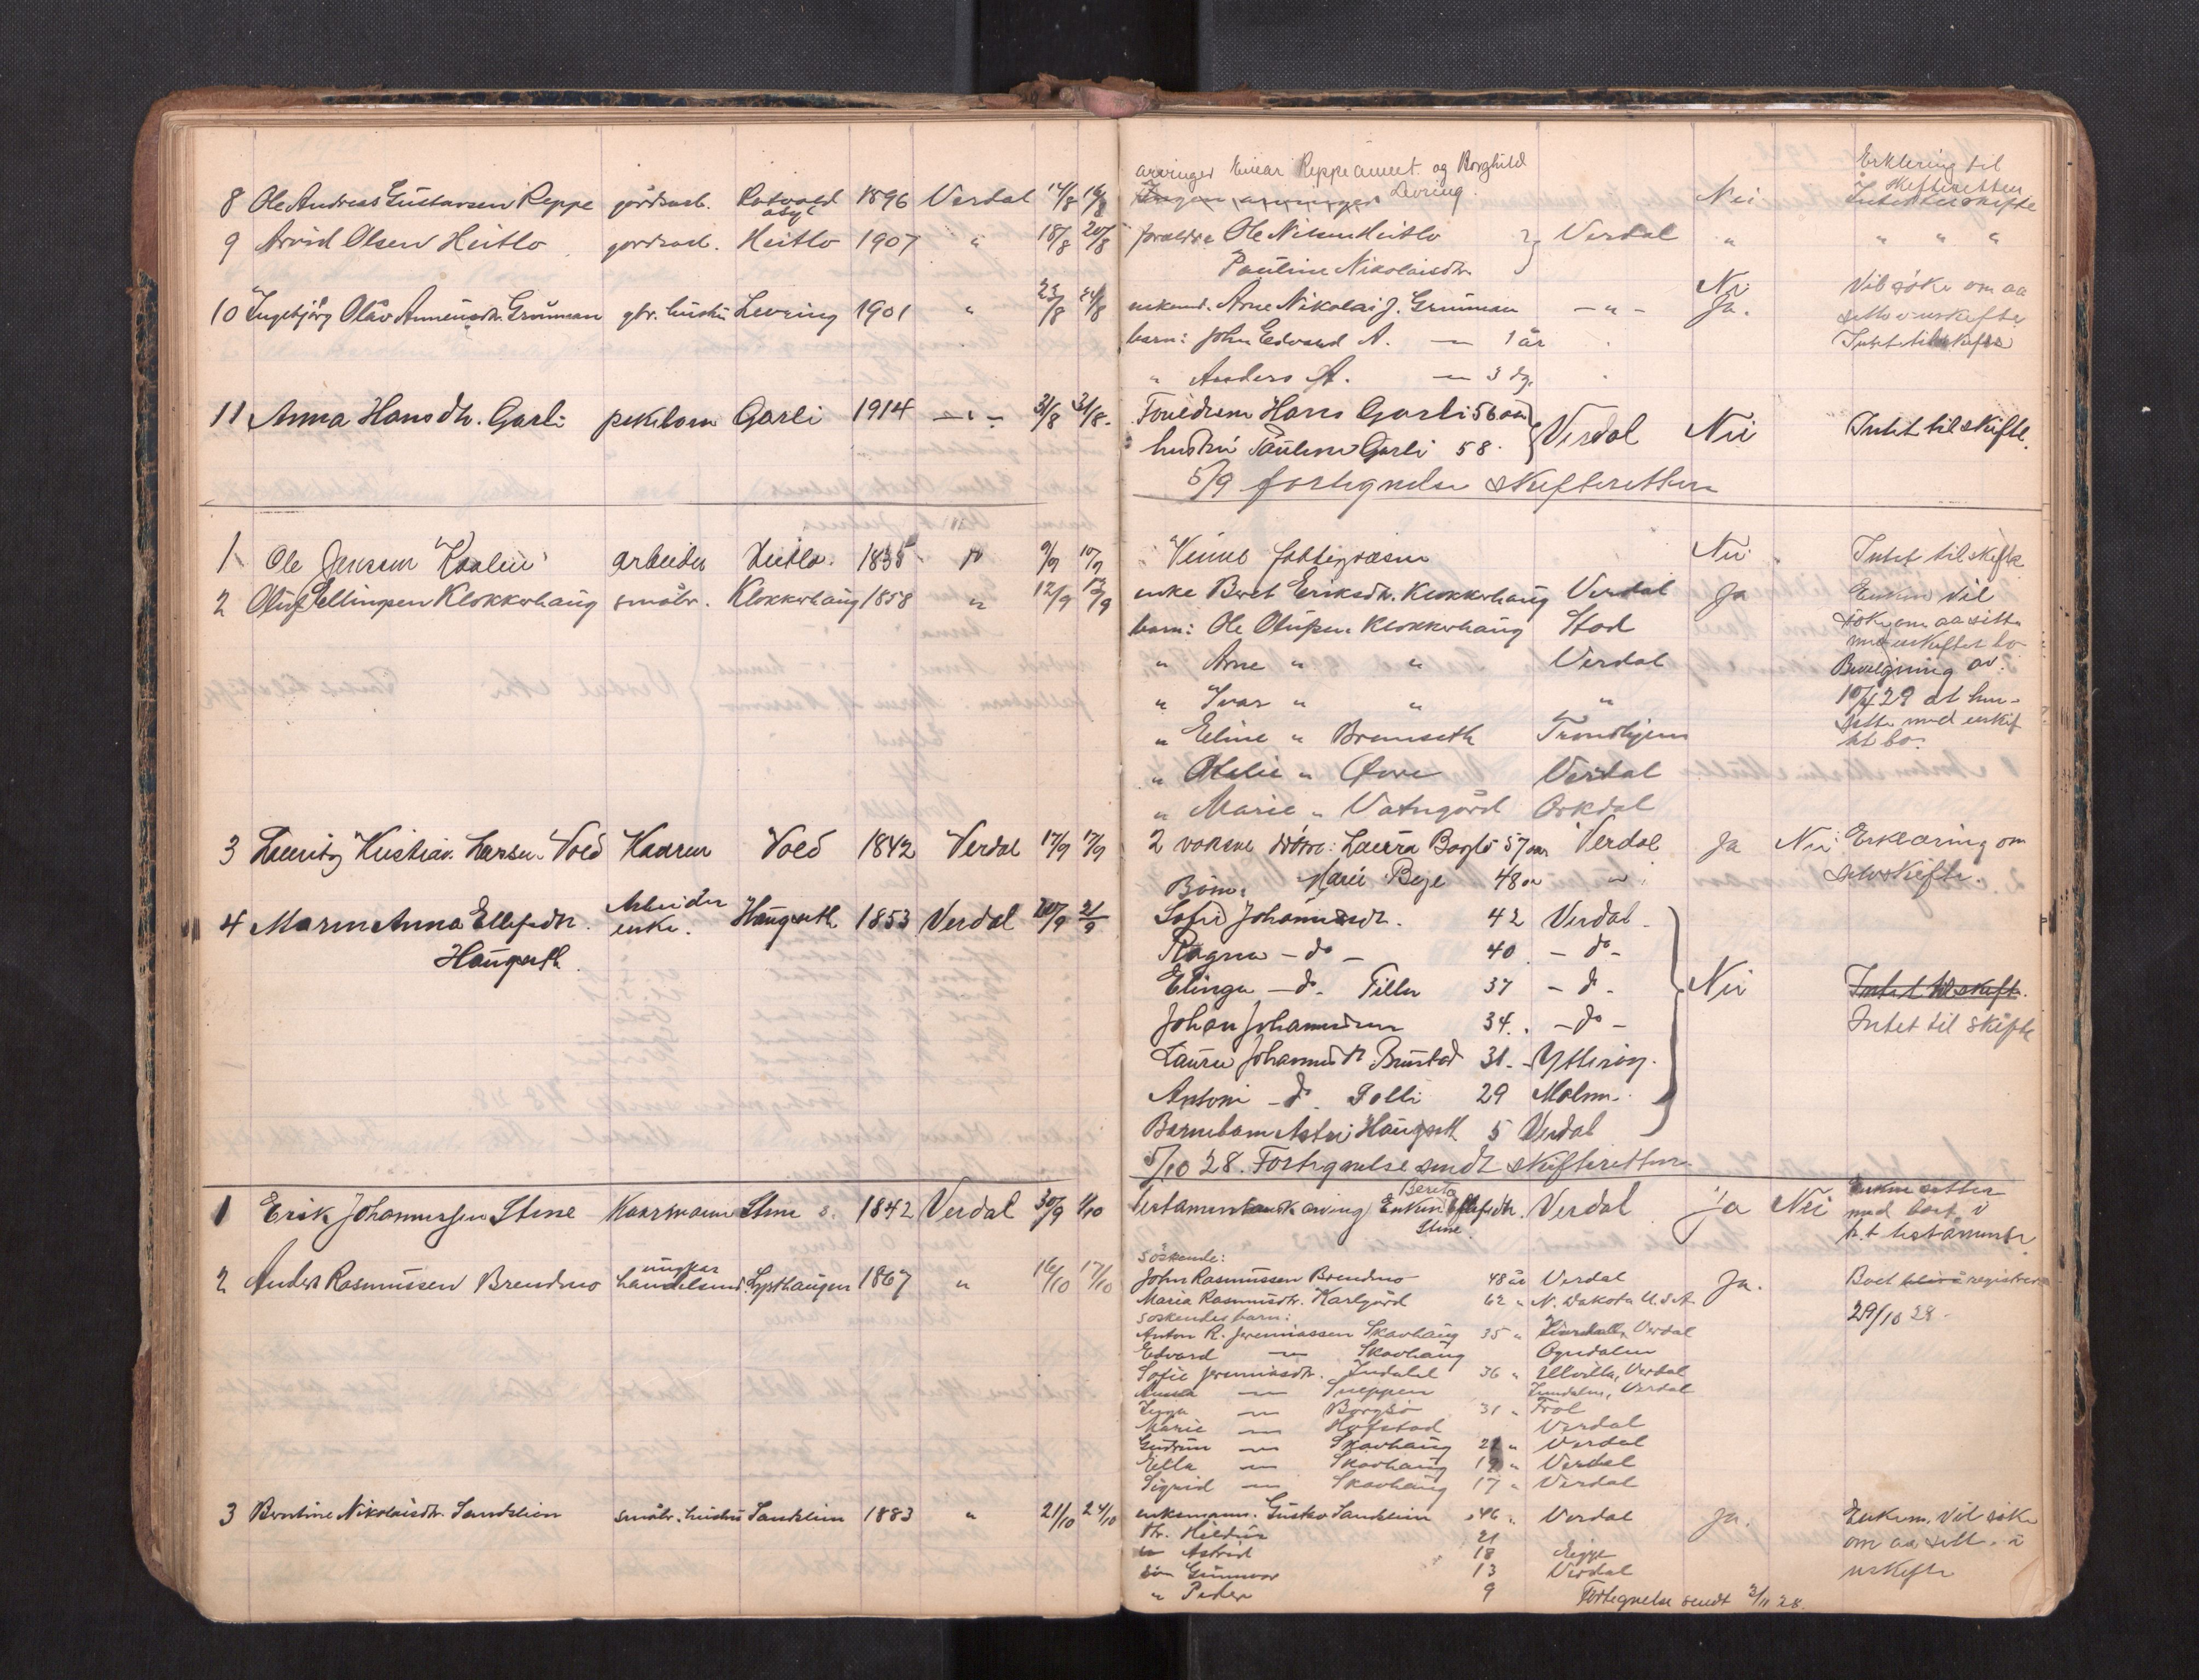 arvinger Einar Reppe ament. og Borghild
8 Ole Andreas Gustavsen Reppe gårdsarb. Rotvold asyl 1896 Verdal 14/8 16/8 Ingen arvinger Levring. Nei Erklering til Skifteretten Intet til skifte
9 Arvid Olsen Heitlo gardsarb. Heitlo 1907 " 18/8 20/8 forældre Ole Nilsen Heitlo Verdal " " " "
Pauline Nikolaisdtr.
10 Ingebjørg Olav Grunnan gbr. hustru Levring 1901 " 23/8 24/8 enkem. Arne Nikolai J. Grunnan - " - Nei Ja. Vil søke om aa sitte i uskifte
barn: John Edvard A. — 1 år Intet til skifte
" Anders A. — 3 dg.
11 Anna Hansdtr. Garli pikebarn Garli 1914 - " - 31/8 31/8. Foreldrene Hans Garli 56 aar Verdal Nei Intet til skifte.
hustru Pauline Garli 58.
5/9 fortegnelse skifteretten
1 Ole Jensen arbeider Heitlo. 1835 " 9/9 10/9 Vinne fattigvæsen Nei Intet til skifte
2 Oluf Ellingsen Klokkerhaug småbr. Klokkerhaug 1858 " 12/9 13/9 enke Beret Eriksdtr. Klokkerhaug Verdal Ja Enken vil
barn: Ole Olufsen Klokkerhaug Stod søke om aa sitte
med uskiftet bo
" Arne " " Verdal Bevilgning av
" Ivar " " " 10/4 29 at hun
sitte med uskif
" Eline " Bremseth Trondhjem tet bo.
" Otelie " Øvre Verdal
" Marie " Vatngård Orkdal
3 Lauritz Kristian Larsen Voll Kaarm Voll 1842 Verdal 17/9 17/9 2 voksne døtre: Laura Baglo 57 aar Verdal Ja Nei Erklæring om
Marie Bye 48 " " selvskifte.
4 Maren Anna Ellefsdtr. Arbeider enke. Haugseth 1853 Verdal 20/9 21/9 Børn:
Haugseth
Sofie Johannesdtr. 42 Verdal
Ragna - do - 40 - do -
Elinga - do - Tiller 37 - do -
Johan Johannessen 34. - do -
Nei Intet til skifte.
Intet til skifte
Laura Johannesdtr. Brustad 31. - Ytterøy.
Antoni - do - Solli 29 Malm.
Barnebarn Astri Haugseth 5 Verdal
5/10 28. Fortegnelse sendt skifteretten
1 Erik Johannessen Stene Kaarmann Stene 1842 Verdal 30/9 1/10 Testamentarisk arving Enken Berit Ellefsdtr. Stene. Verdal Ja Nei Enken sitter med boet i h.t testamente
2 Anders Rasmussen Brendmo ungkar handelsmd. Lysthaugen 1867 " 16/10 17/10
søskende:
John Rasmussen Brendmo 48 år Verdal Ja. Boet registrer
Maria Rasmusdtr. Karlgård 62 " N. Dakota U.S.A. 29/10 28.
søskendes barn:
Anton R. Jeremiassen Skavhaug 35 " Verdal
Edvard — Skavhaug Ogndalen
Sofie Jeremiasdtr. Indahl 36 " Ulvilla, Verdal
Anna — Sneppen Inndalen, Verdal
Inga — Borgsø 31 " Frol
Marie — Hofstad Verdal
Gudrun — Skavhaug 22 " Verdal
Ella — Skavhaug 19 " Verdal
Sigrid — Skavhaug 17 " Verdal
3 Berntine Nikolaisdtr. Sandslien småbr. hustru Sandslien 1883 " 21/10 24/10 enkemann. Gustav Sandslien 46 " Verdal Ja. Enkem. vil søke
dtr. Hildur 21 om aa sitte i
" Astrid 18 Egge uskifte
søn Gunnvar 13 Verdal
" Peder 9 Fortegnelse sendt 2/11 28.